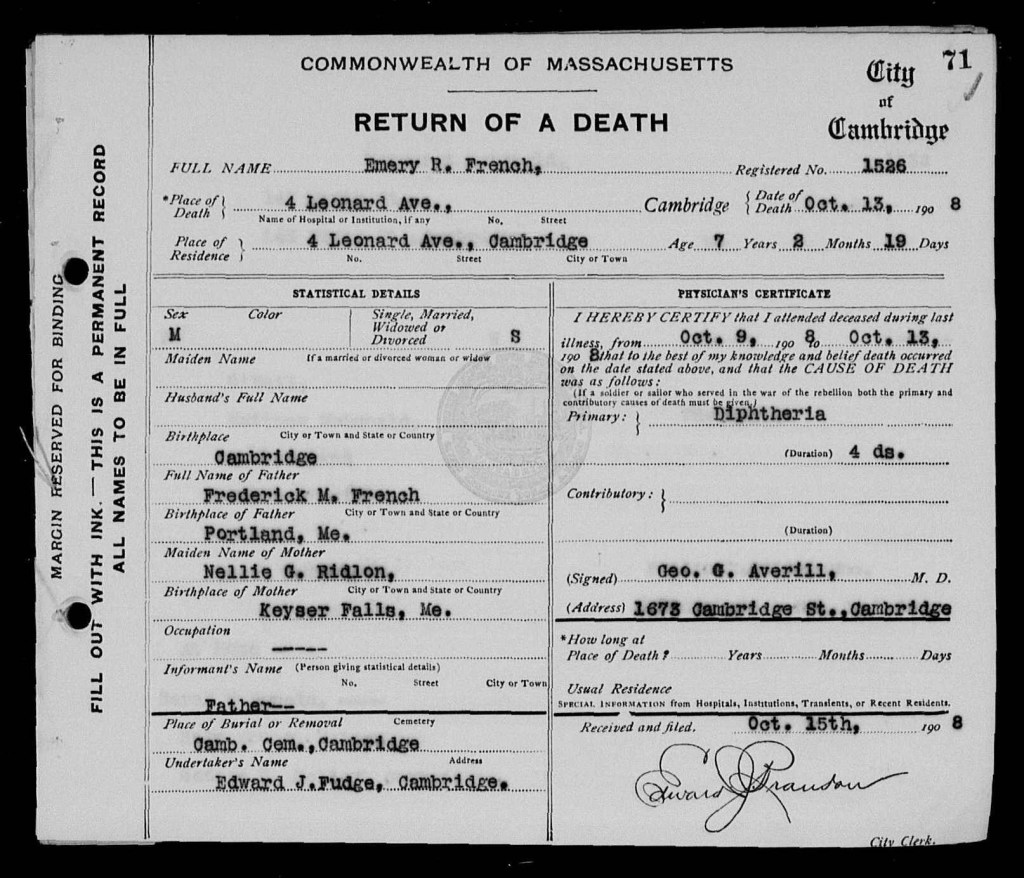 71
COMMONWEALTH OF MASSACHUSETTS
City
of
Cambridge
RETURN OF A DEATH
FULL NAME Emery R. French, Registered No. 1526
*Place of Death } 4 Leonard Ave., Cambridge { Date of Death Oct. 13, 190 8
Name of Hospital or Institution, if any No. Street
Place of Residence } 4 Leonard Ave., Cambridge Age 7 Years 2 Months 19 Days
No. Street City or Town
STATISTICAL DETAILS
Sex Color Single, Married, Widowed or Divorced
M S
Maiden Name If a married or divorced woman or widow
Husband's Full Name
Birthplace City or Town and State or Country
Cambridge
Full Name of Father
Frederick M. French
Birthplace of Father City or Town and State or Country
Portland, Me.
Maiden Name of Mother
Nellie G. Ridlon,
Birthplace of Mother City or Town and State or Country
Keyser Falls, Me.
Occupation
-----
Informant's Name (Person giving statistical details)
No. Street City or Town
Father--
Place of Burial or Removal Cemetery
Camb. Cem.,Cambridge
Undertaker's Name Address
Edward J.Fudge, Cambridge.
PHYSICIAN'S CERTIFICATE
I HEREBY CERTIFY that I attended deceased during last
illness, from Oct. 9, 190 8 to Oct. 13,
190 8 that to the best of my knowledge and belief death occurred
on the date stated above, and that the CAUSE OF DEATH
was as follows:
(If a soldier or sailor who served in the war of the rebellion both the primary and
contributory causes of death must be given.)
Primary: } Diphtheria
(Duration) 4 ds.
Contributory: }
(Duration)
(Signed) Geo. G. Averill, M. D.
(Address) 1673 Cambridge St.,Cambridge
*How long at
Place of Death? Years Months Days
Usual Residence
SPECIAL INFORMATION from Hospitals, Institutions, Transients, or Recent Residents.
Received and filed. Oct. 15th, 190 8
Edward J. Brandon
City Clerk.
MARGIN RESERVED FOR BINDING
FILL OUT WITH INK.—THIS IS A PERMANENT RECORD
ALL NAMES TO BE IN FULL